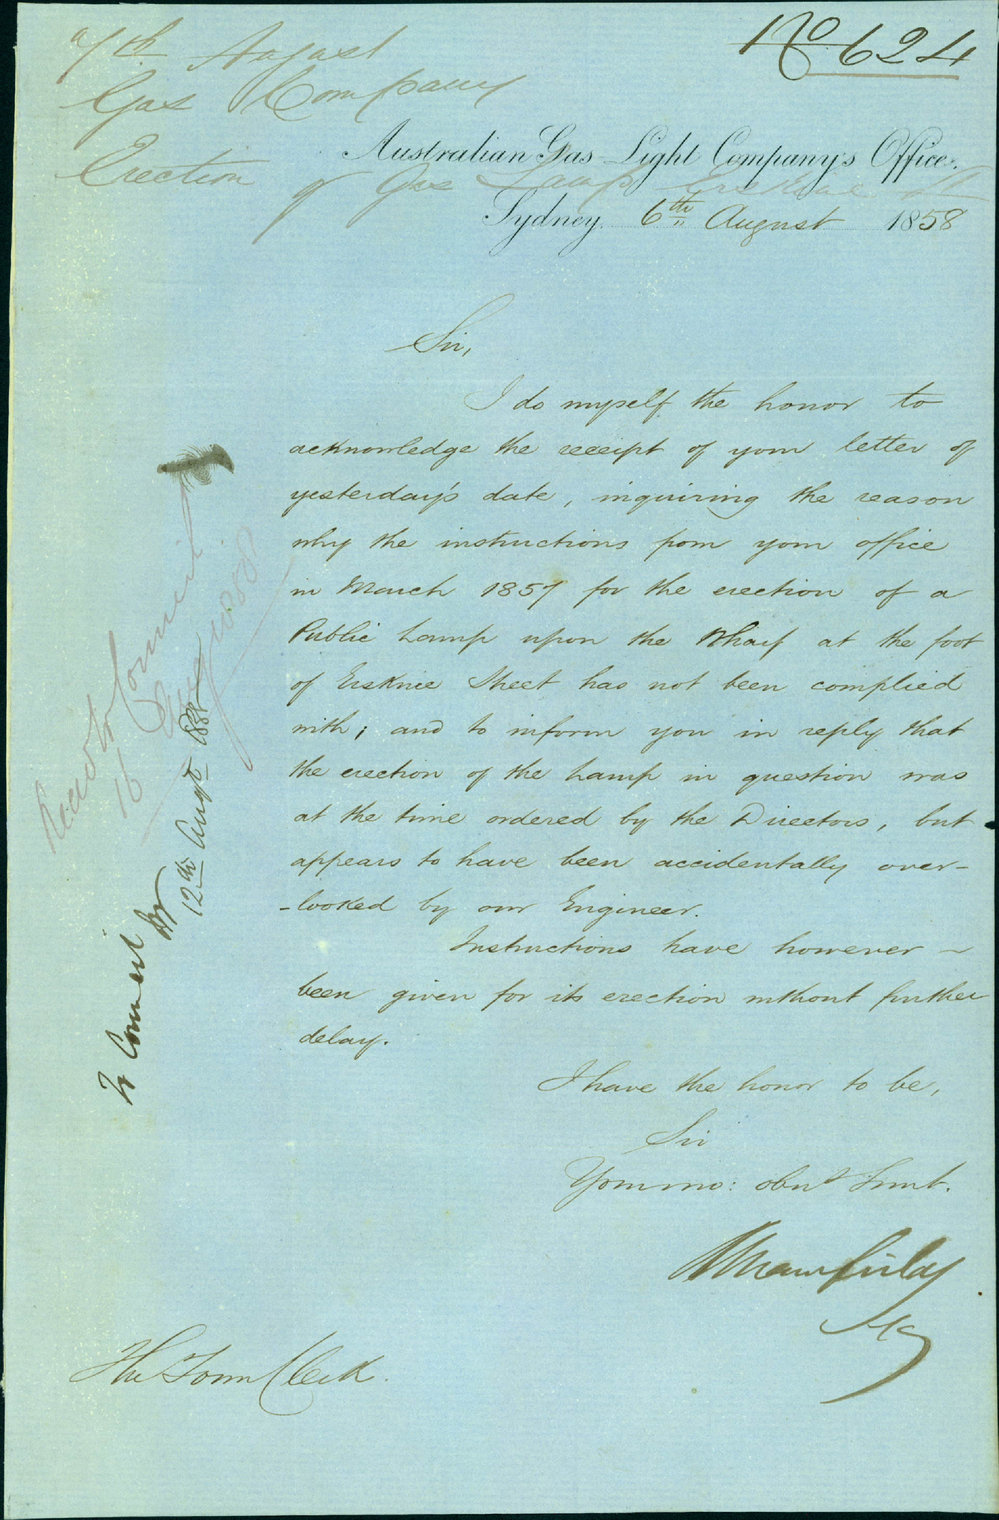 No 624
7th August
Gas Company
Erection of Gas Lamp Erskine St
Australian Gas Light Company's Office,
Sydney, 6th August 1858
Sir,
I do myself the honor to
acknowledge the receipt of your letter of
yesterday's date, inquiring the reason
why the instructions from your office
in March 1857 for the erection of a
Public Lamp upon the Wharf at the foot
of Erskine Street has not been complied
with; and to inform you in reply that
the erection of the Lamp in question was
at the time ordered by the Directors, but
appears to have been accidentally over-
-looked by our Engineer.
Instructions have however
been given for its erection without further
delay.
I have the honor to be,
Sir
Your mo: obnt Servt.
Secy
The Town Clerk.
Read to Council
16 Aug
To Council
12th Augt 1858